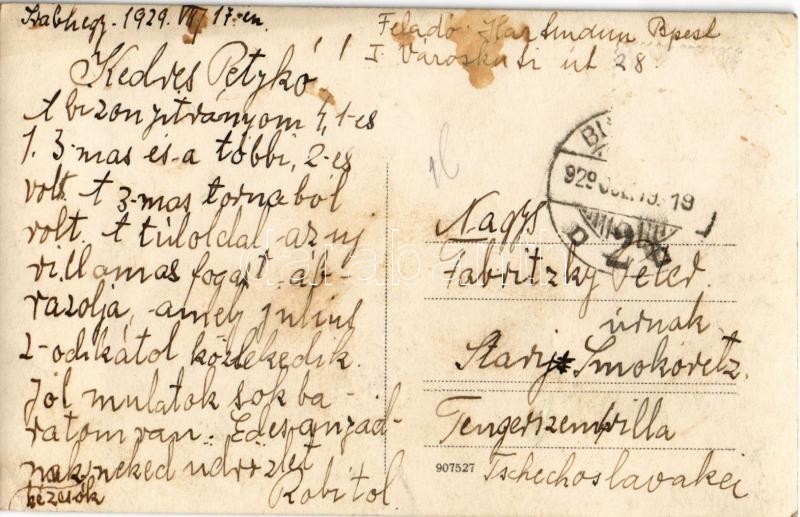 Svábhegy. 1929. VII/17-en.
Feladó: Hartmdun Bpest
I. Városkuti út 28.
Kedves Petykó!
A bizonyitványom 4, 1-es
1. 3-mas és a többi, 2-es
volt. A 3-mas tornaból
volt. A túloldal az uj
villamos fogast áb-
razolja, amely julius
2-odikától közlekedik.
Jól mulatok sok ba-
ratom van. Edesanyád-
nak neked üdvözlet
kézcsók
Robitol.
929 JUL. 19. 19
Nagys
Fabritzky Peter
úrnak
Stary Smokovetz.
Tengerszem villa
Tschechoslavakei
907527
darabanth